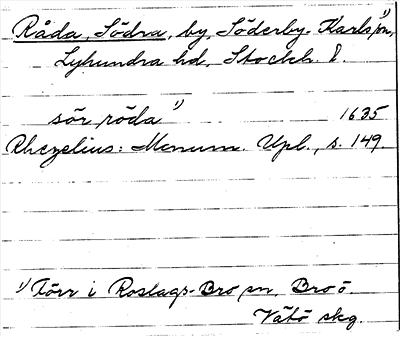 Råda, Södra, by, Söderby-Karls sn, 1)
Lyhundra hd, Stockh. l.
sör röda 1) 1635
Rhezelius: Monum. Upl., s. 149.
1) Förr i Roslags-Bro sn, Bro ö.
Vätö skg.